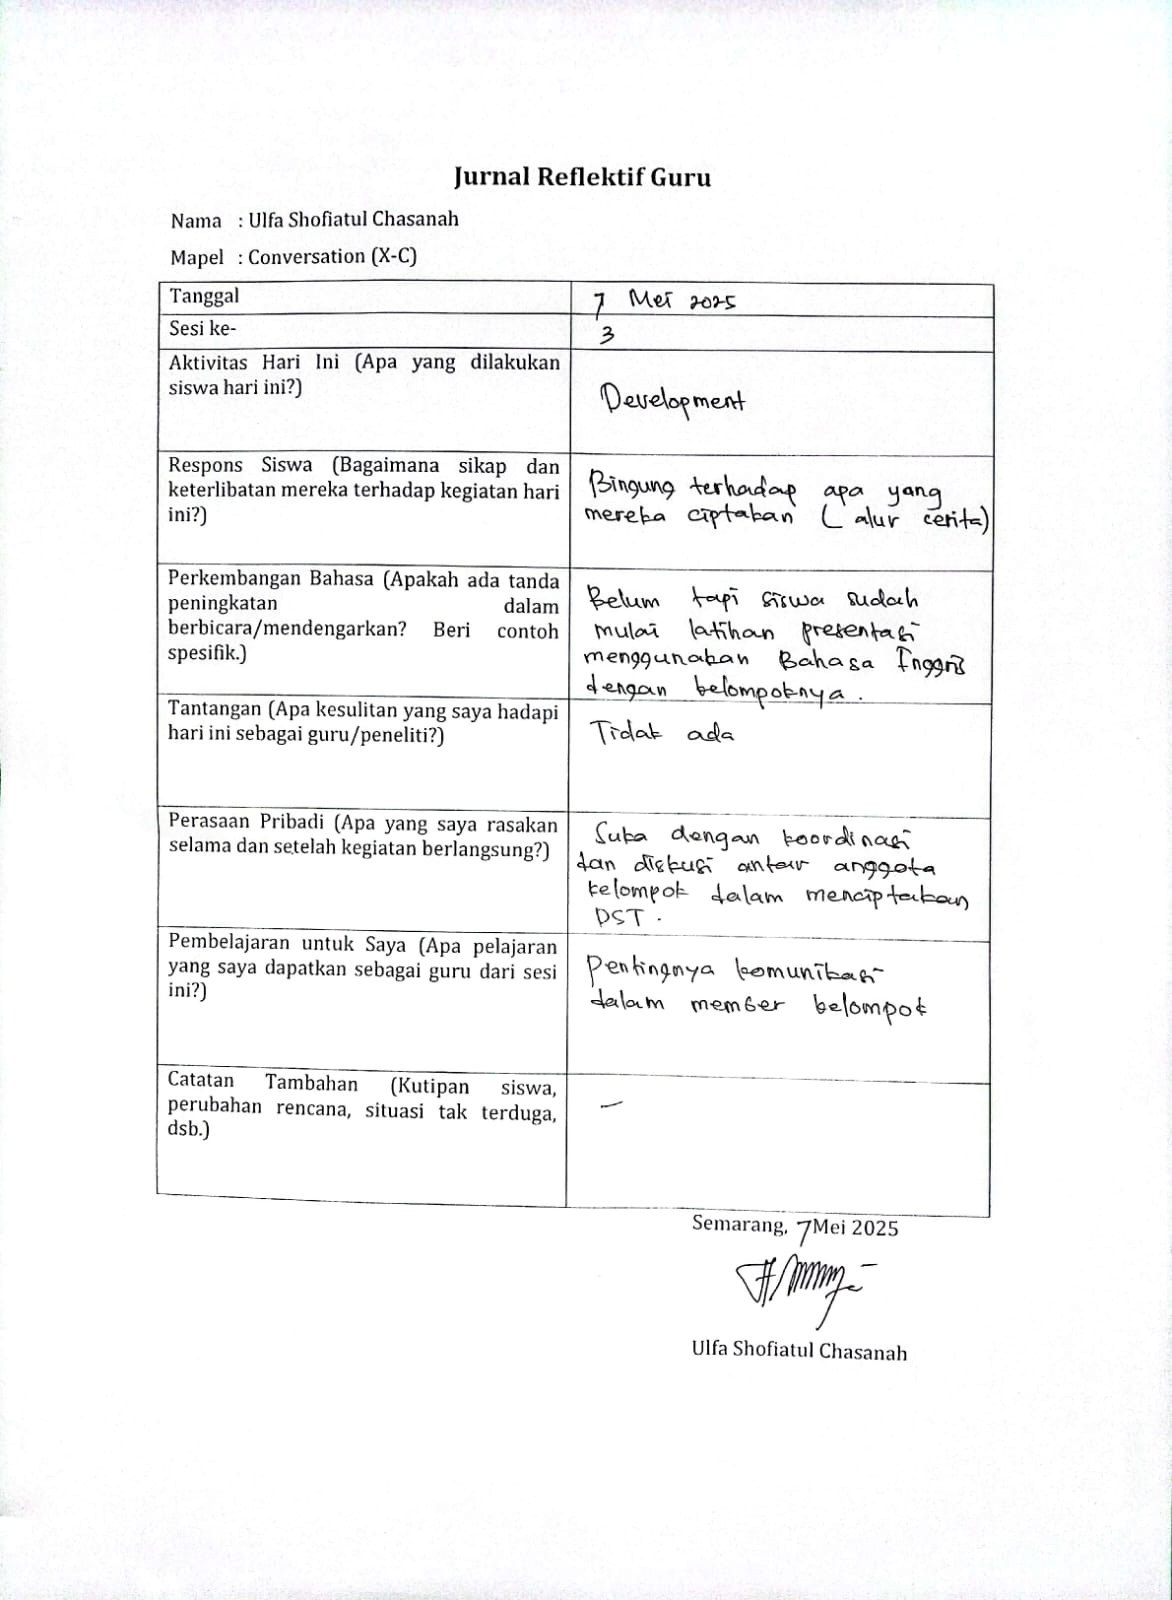 Jurnal Reflektif Guru
Nama : Ulfa Shofiatul Chasanah
Mapel : Conversation (X-C)
Tanggal
7 Mei 2025
Sesi ke-
3
Aktivitas Hari Ini (Apa yang dilakukan
siswa hari ini?)
Development
Respons Siswa (Bagaimana sikap dan
keterlibatan mereka terhadap kegiatan hari
ini?)
Bingung terhadap apa yang
mereka ciptakan ( alur cerita)
Perkembangan Bahasa (Apakah ada tanda
peningkatan dalam
berbicara/mendengarkan? Beri contoh
spesifik.)
Belum tapi siswa sudah
mulai latihan presentasi
menggunakan Bahasa Inggris
dengan kelompoknya.
Tantangan (Apa kesulitan yang saya hadapi
hari ini sebagai guru/peneliti?)
Tidak ada
Perasaan Pribadi (Apa yang saya rasakan
selama dan setelah kegiatan berlangsung?)
Suka dengan koordinasi
dan diskusi antar anggota
kelompok dalam menciptakan
DST.
Pembelajaran untuk Saya (Apa pelajaran
yang saya dapatkan sebagai guru dari sesi
ini?)
Pentingnya komunikasi
dalam member kelompok
Catatan Tambahan (Kutipan siswa,
perubahan rencana, situasi tak terduga,
dsb.)
-
Semarang, 7 Mei 2025
Ulfa Shofiatul Chasanah